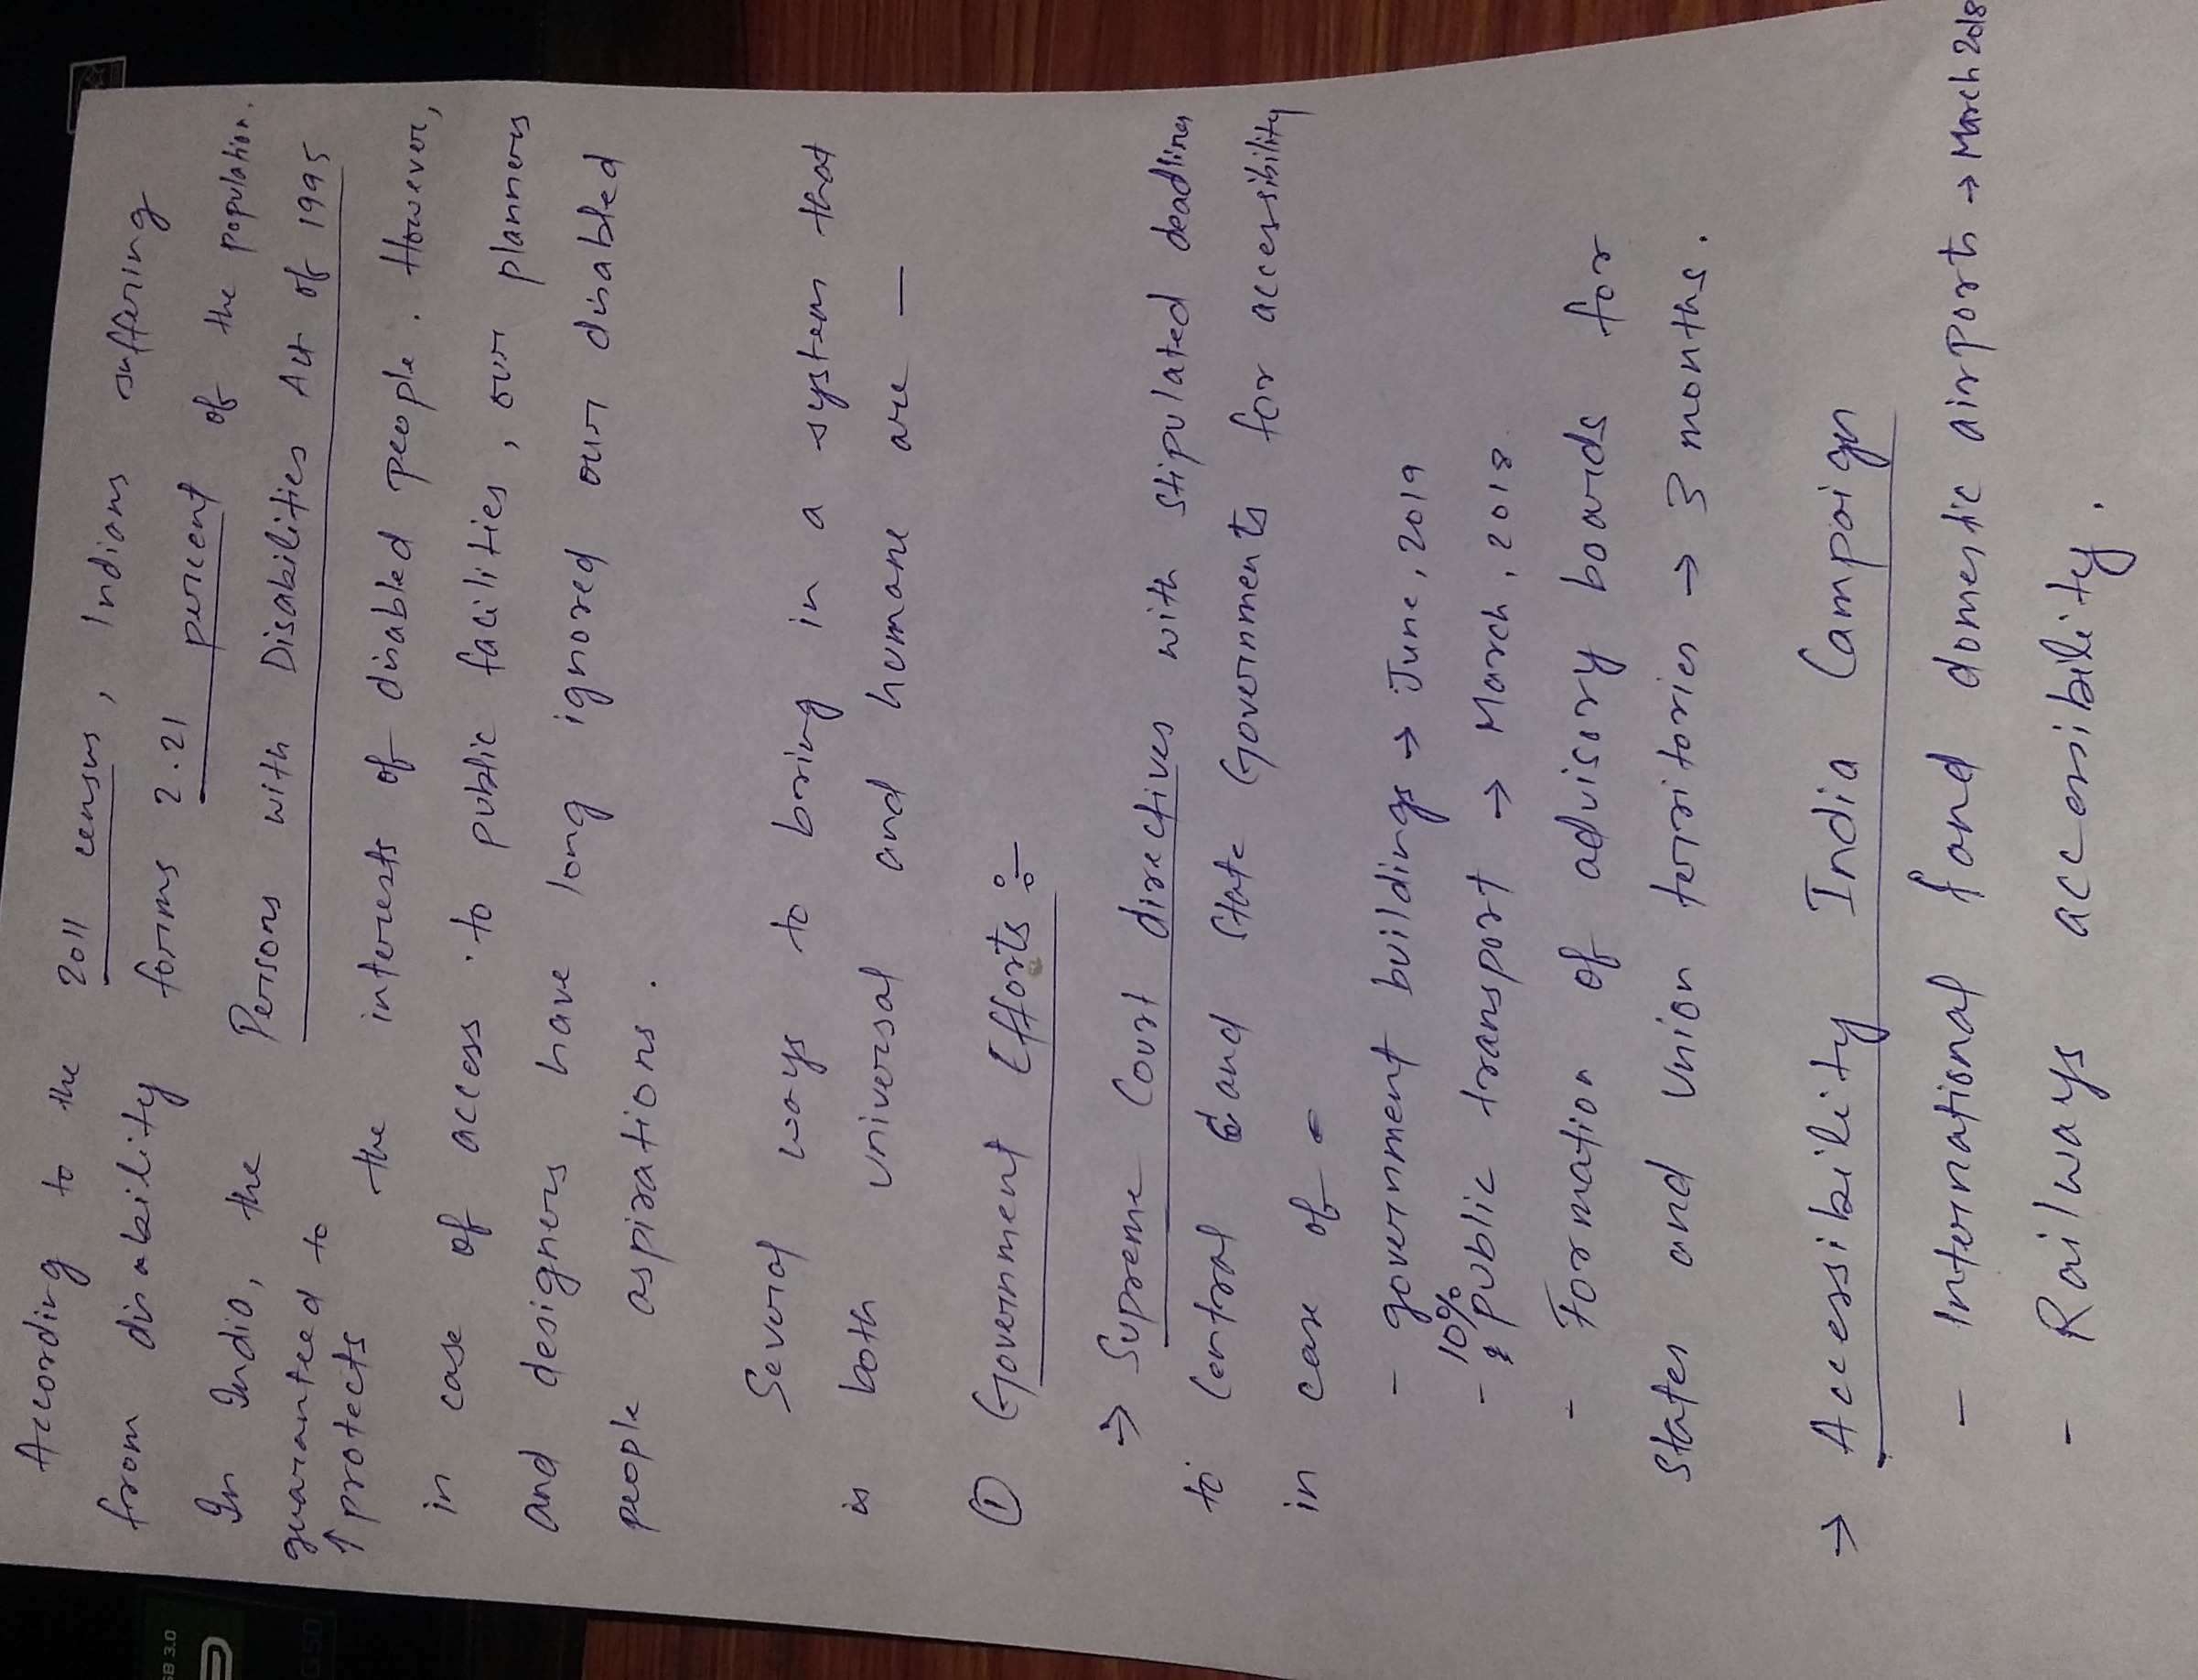 According to the 2011 census, Indians suffering
from disability forms 2.21 percent of the population.
In India, the Persons with Disabilities Act of 1995
guaranteed to
↑ protects the interests of disabled people. However,
in case of access to public facilities, our planners
and designers have long ignored our disabled
people aspirations.
Several ways to bring in a system that
is both universal and humane are —
① Government Efforts :-
→ Supreme Court directives with stipulated deadlines
to Central and State Governments for accessibility
in case of
- government buildings → June, 2019
- 10% public transport → March, 2018
- Formation of advisory boards for
States and Union territories → 3 months.
→ Accessibility India Campaign
- International and domestic airports → March 2018
- Railways accessibility.
SB 3.0